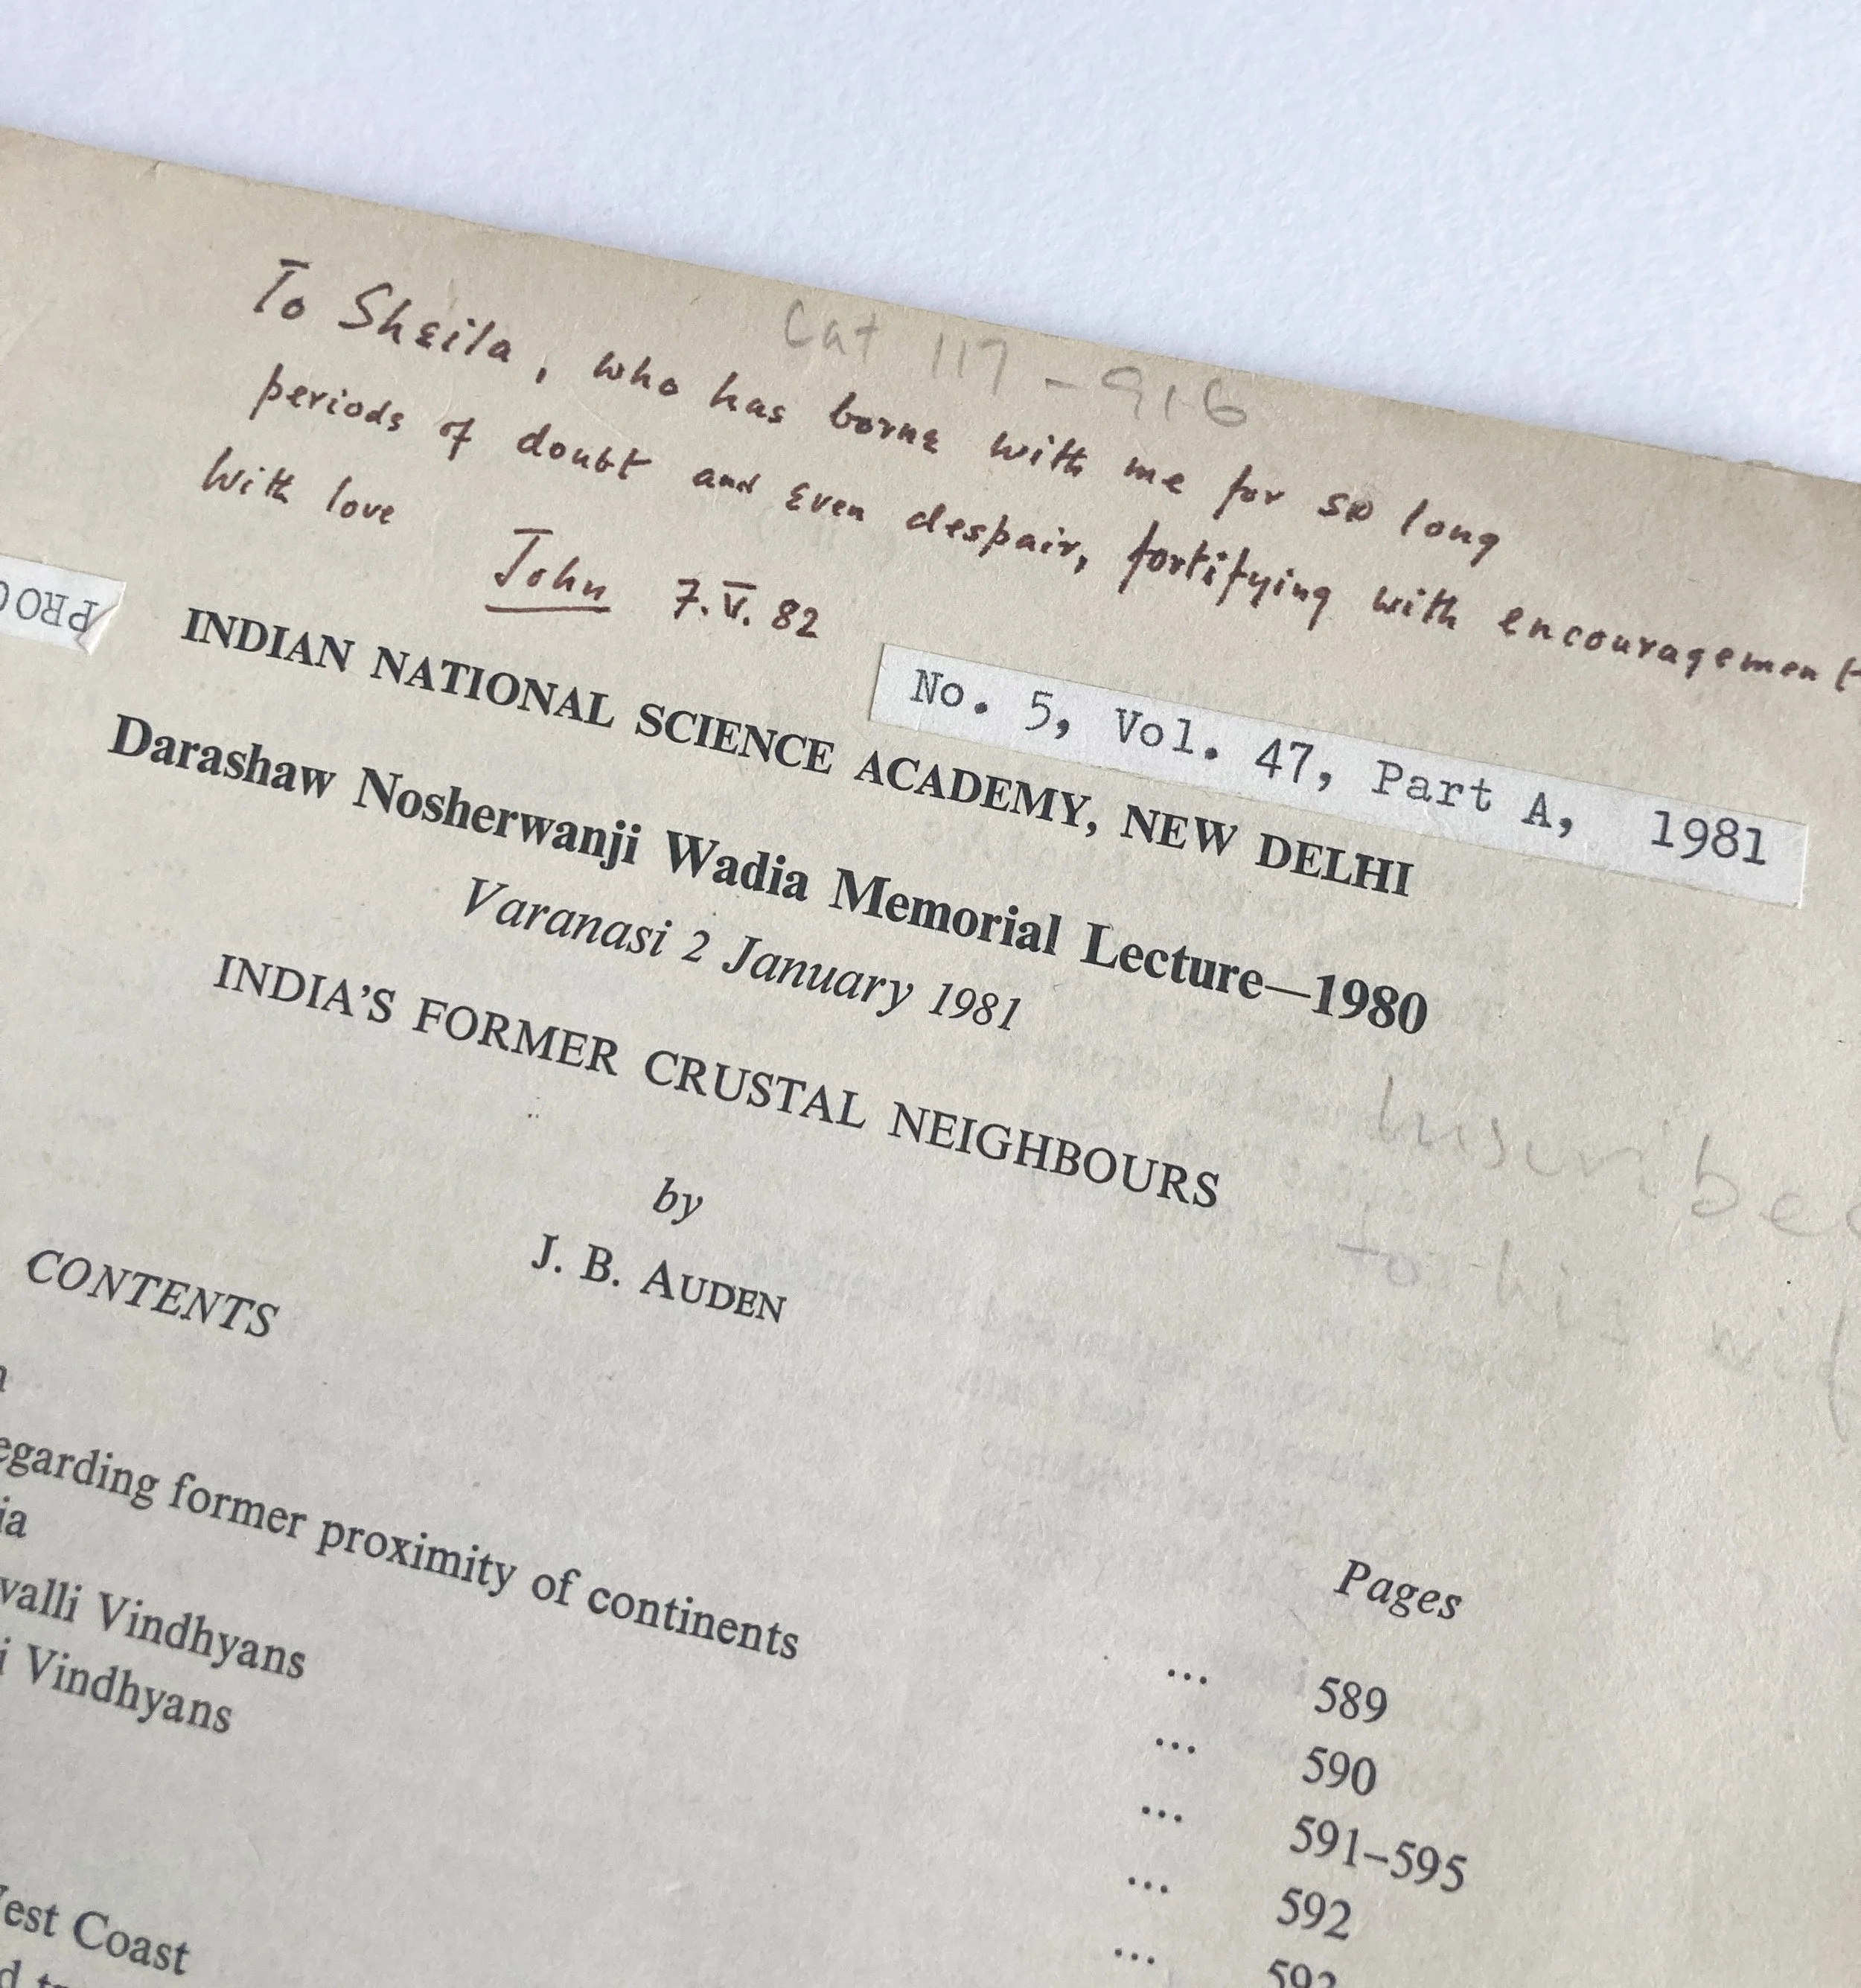 Cat 117-916
To Sheila, who has borne with me for so long
periods of doubt and even despair, fortifying with encouragement
With love
John 7.V.82
PROC
No. 5, Vol. 47, Part A, 1981
INDIAN NATIONAL SCIENCE ACADEMY, NEW DELHI
Darashaw Nosherwanji Wadia Memorial Lecture—1980
Varanasi 2 January 1981
INDIA'S FORMER CRUSTAL NEIGHBOURS
Inscribed
to his wife
by
J. B. AUDEN
CONTENTS
Pages
... 589
egarding former proximity of continents ... 590
ia ... 591–595
valli Vindhyans ... 592
i Vindhyans ... 593
est Coast